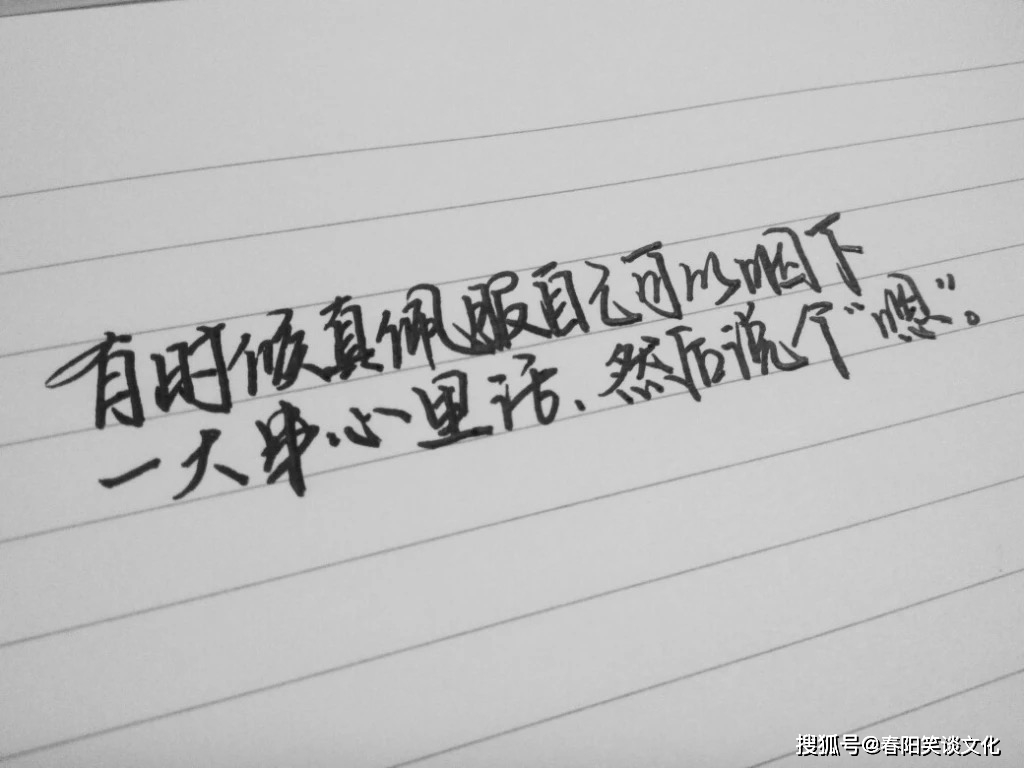 有时候真佩服自己可以咽下
一大串心里话、然后说个“嗯”。
搜狐号@春阳笑谈文化